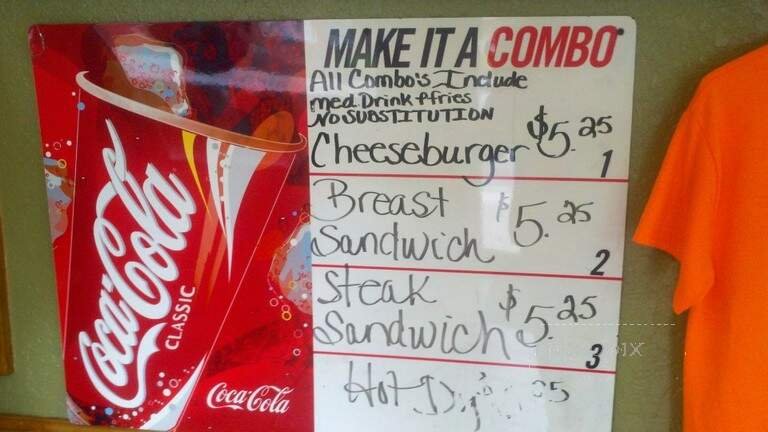 MAKE IT A COMBO
All Combo's Include
med Drink + fries
NO SUBSTITUTION
Cheeseburger $5.25
1
Breast $5.25
Sandwich
2
Steak $5.25
Sandwich
3
Hot
Coca-Cola
CLASSIC
Coca-Cola